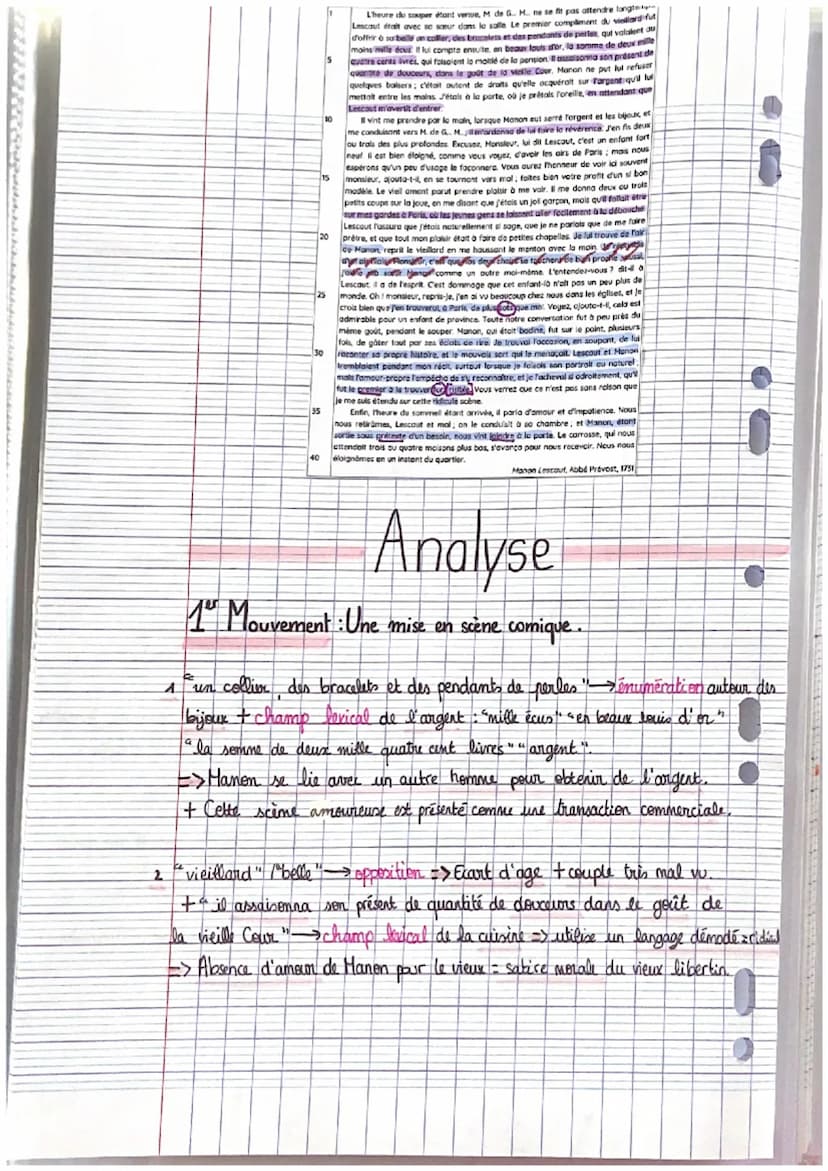 1 L'heure du souper étant venue, M. de G... M... ne se fit pas attendre
Lescaut était avec sa sœur dans la salle. Le premier compliment du vieillard fut
d'offrir à sa belle un collier, des bracelets et des pendants de perles, qui valaient au
moins mille écus. Il lui compta ensuite, en beaux louis d'or, la somme de deux mille
5 quatre cents livres, qui faisaient la moitié de la pension. Il assaisonna son présent de
quantité de douceurs, dans le goût de la vieille Cour. Manon ne put lui refuser
quelques baisers ; c'était autant de droits qu'elle acquérait sur l'argent qu'il lui
mettait entre les mains. J'étais à la porte, où je prêtais l'oreille, en attendant que
Lescaut m'avertît d'entrer.
10 Il vint me prendre par la main, lorsque Manon eut serré l'argent et les bijoux, et
me conduisant vers M. de G... M..., il m'ordonna de lui faire la révérence. J'en fis deux
ou trois des plus profondes. Excusez, Monsieur, lui dit Lescaut, c'est un enfant fort
neuf. Il est bien éloigné, comme vous voyez, d'avoir les airs de Paris ; mais nous
espérons qu'un peu d'usage le façonnera. Vous aurez l'honneur de voir ici souvent
15 monsieur, ajouta-t-il, en se tournant vers moi ; faites bien votre profit d'un si bon
modèle. Le vieil amant parut prendre plaisir à me voir. Il me donna deux ou trois
petits coups sur la joue, en me disant que j'étais un joli garçon, mais qu'il fallait être
sur mes gardes à Paris, où les jeunes gens se laissent aller facilement à la débauche.
Lescaut l'assura que j'étais naturellement si sage, que je ne parlais que de me faire
20 prêtre, et que tout mon plaisir était à faire de petites chapelles. Je lui trouve de l'air
de Manon, reprit le vieillard en me haussant le menton avec la main.
comme un autre moi-même. L'entendez-vous ? dit-il à
Lescaut, il a de l'esprit. C'est dommage que cet enfant-là n'ait pas un peu plus de
25 monde. Oh ! monsieur, repris-je, j'en ai vu beaucoup chez nous dans les églises, et je
crois bien que j'en trouverai, à Paris, de plus sots que moi. Voyez, ajouta-t-il, cela est
admirable pour un enfant de province. Toute notre conversation fut à peu près du
même goût, pendant le souper. Manon, qui était badine, fut sur le point, plusieurs
fois, de gâter tout par ses éclats de rire. Je trouvai l'occasion, en soupant, de lui
30 raconter sa propre histoire, et le mauvais sort qui le menaçait. Lescaut et Manon
tremblaient pendant mon récit, surtout lorsque je faisais son portrait au naturel ;
mais l'amour-propre l'empêcha de s'y reconnaître, et je l'achevai si adroitement, qu'il
fut le premier à le trouver fort risible. Vous verrez que ce n'est pas sans raison que
je me suis étendu sur cette ridicule scène.
35 Enfin, l'heure du sommeil étant arrivée, il parla d'amour et d'impatience. Nous
nous retirâmes, Lescaut et moi ; on le conduisit à sa chambre, et Manon, étant
sortie sous prétexte d'un besoin, nous vint joindre à la porte. Le carrosse, qui nous
attendait trois ou quatre maisons plus bas, s'avança pour nous recevoir. Nous nous
40 éloignâmes en un instant du quartier.
Manon Lescaut, Abbé Prévost, 1731
Analyse
1er Mouvement : Une mise en scène comique.
1 "un collier, des bracelets et des pendants de perles" → énumération autour des
bijoux + champ lexical de l'argent : "mille écus" "en beaux louis d'or"
"la somme de deux mille quatre cent livres" "argent".
=> Manon se lie avec un autre homme pour obtenir de l'argent.
+ Cette scène amoureuse est présenté comme une transaction commerciale.
2 "vieillard" / "belle" → opposition => Ecart d'age + couple très mal vu.
+ "il assaisonna son présent de quantité de douceurs dans le goût de
la vieille Cour" → champ lexical de la cuisine => utilise un langage démodé
=> Absence d'amour de Manon pour le vieux = satire morale du vieux libertin